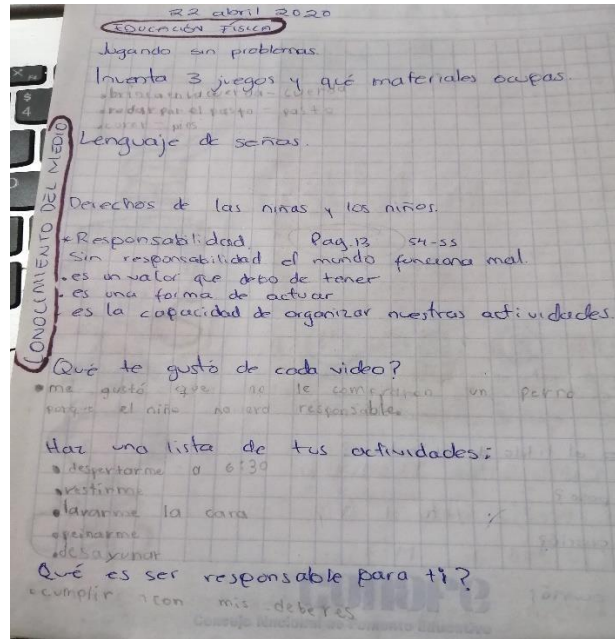 22 abril 2020
EDUCACIÓN FÍSICA
Jugando sin problemas.
Inventa 3 juegos y qué materiales ocupas.
cuerda
rodar por el pasto - pasto
correr - pies
CONOCIMIENTO DEL MEDIO
Lenguaje de señas.
Derechos de las niñas y los niños.
*Responsabilidad. Pag. 13 54-55
Sin responsabilidad el mundo funciona mal.
• es un valor que debo de tener
• es una forma de actuar
es la capacidad de organizar nuestras actividades.
Qué te gustó de cada video?
• me gustó que no le un perro
porque el niño no era responsable.
Haz una lista de tus actividades:
• despertarme a 6:30
• vestirme
• lavarme la cara
• peinarme
• desayunar
Qué es ser responsable para ti?
• cumplir con mis deberes
Conafe
Consejo Nacional de Fomento Educativo